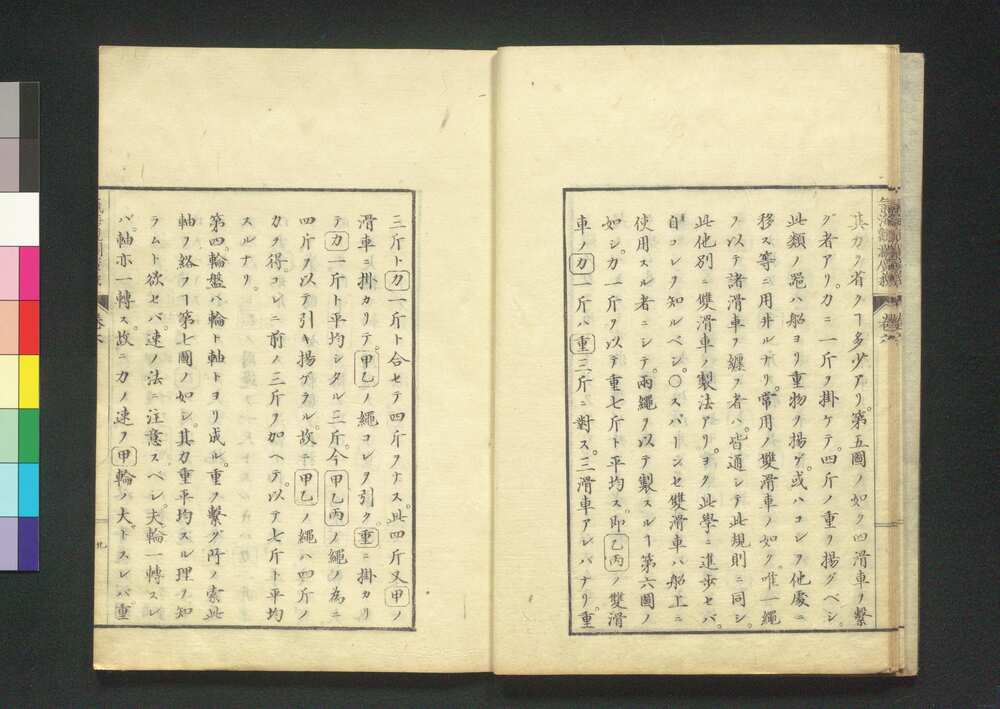 其力ヲ省クヿ多少アリ。第五圖ノ如ク四滑車ノ繋
グ者アリ。力ニ一斤ヲ掛ケテ。四斤ノ重ヲ揚グベシ。
此類ノ 船ヨリ重物ヲ揚ゲ。或ハコレヲ他處ニ
移ス等ニ用井ルナリ。常用ノ雙滑車ノ如ク。唯一繩
ヲ以テ諸滑車ヲ纏フ者ハ。皆通シテ此規則ニ同シ。
此他別ニ雙滑車ノ製法アリ。ヨク此學ニ進歩セバ。
自コレヲ知ルベシ。○スパーンセ雙滑車ハ船上ニ
使用スル者ニシテ。兩繩ヲ以テ製スルヿ第六圖ノ
如シ。力一斤ヲ以テ重七斤ト平均ス。即乙丙ノ雙滑
車ノ力一斤ハ重三斤ニ對ス。三滑車アレバナリ。重
三斤ト力一斤ト合セテ四斤ヲナス。此四斤又甲ノ
滑車ニ掛カリテ。甲乙ノ繩コレヲ引ク。重ニ掛カリ
テ力一斤ト平均シタル三斤。今甲乙丙ノ繩ノ為ニ
四斤ヲ以テ引キ揚ゲラル。故ニ甲乙ノ繩ハ四斤ノ
力ヲ得。コレニ前ノ三斤ヲ加ヘテ。以テ七斤ト平均
スルナリ。
第四。輪盤ハ輪ト軸トヨリ成ル。重ヲ繋グ所ノ索此
軸ヲ絡フヿ第七圖ノ如シ。其力重平均スル理ヲ知
ラムト欲セバ。速ノ法ニ注意スベシ。夫輪一轉スレ
バ。軸亦一轉ス。故ニ力ノ速ヲ甲輪ノ大トスレバ重